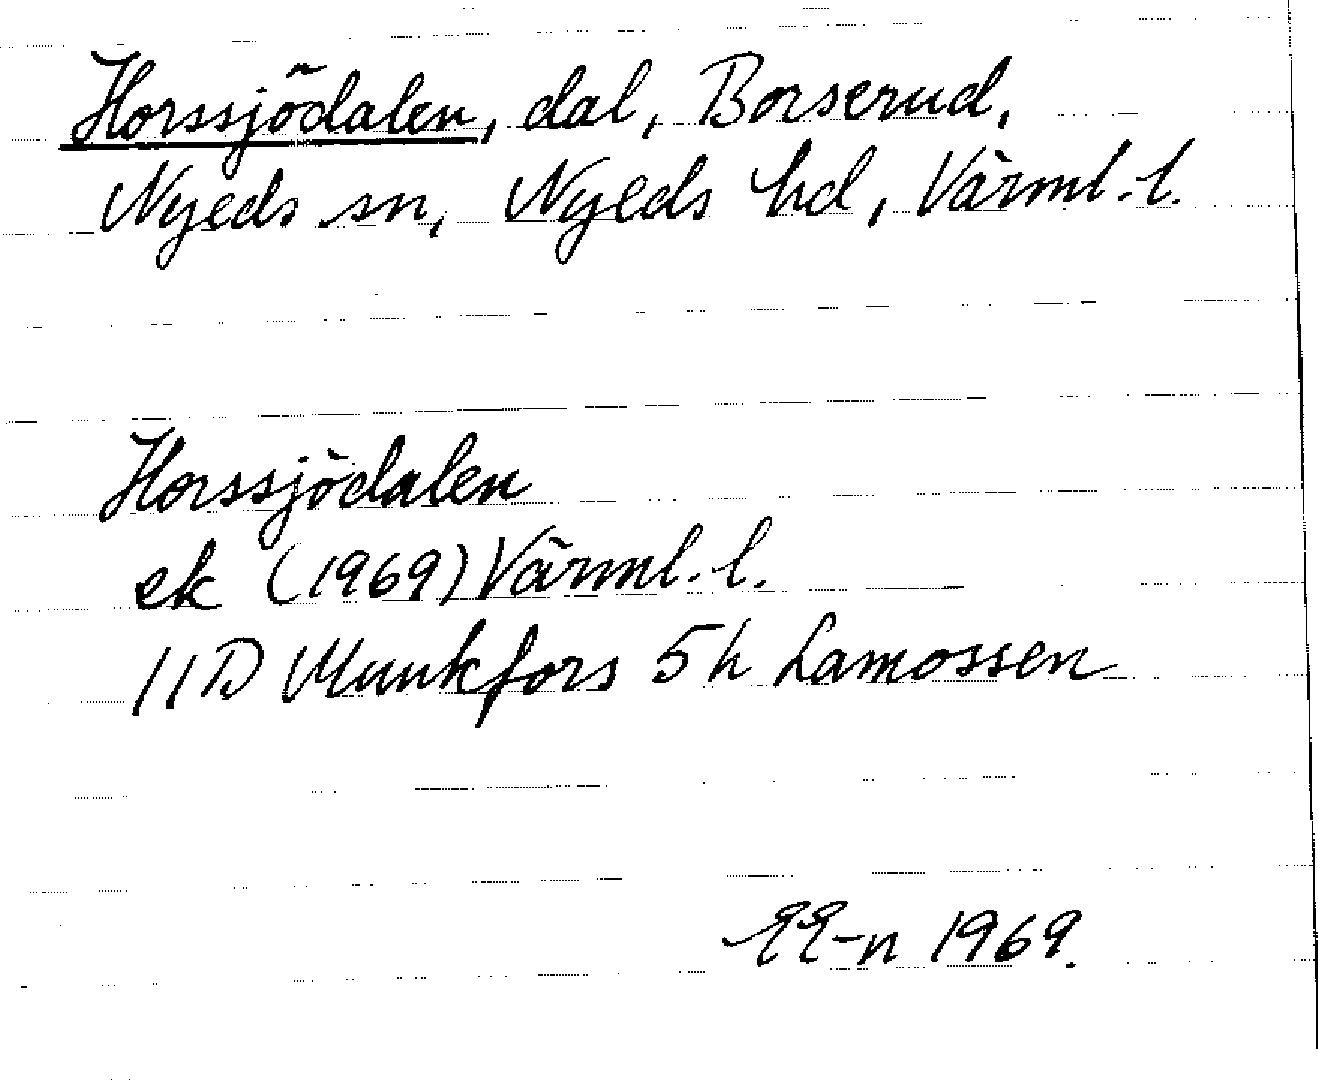 Horssjödalen, dal, Borserud,
Nyeds sn, Nyeds hd, Värml. l.
Horssjödalen
ek (1969) Värml. l.
11D Munkfors 5h Lamossen
1969.